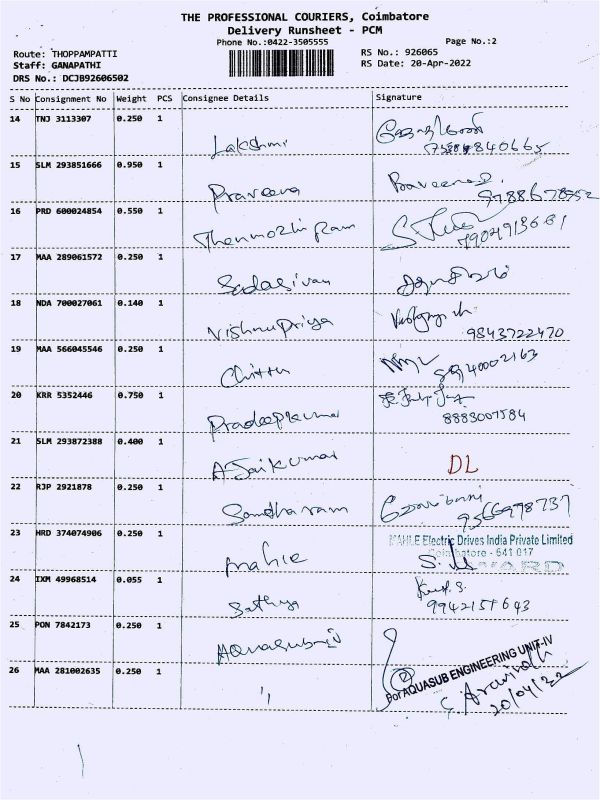 THE PROFESSIONAL COURIERS, Coimbatore
Delivery Runsheet - PCM
Phone No.:0422-3505555
Page No.:2
Route: THOPPAMPATTI
RS No.: 926065
Staff: GANAPATHI
RS Date: 20-Apr-2022
DRS No.: DCJB92606502
S No Consignment No Weight PCS Consignee Details Signature
14 TNJ 3113307 0.250 1 Lakshmi
15 SLM 293851666 0.950 1 Praveena Praveena
16 PRD 600024854 0.550 1 Thenmozhi Ram
7904913681
17 MAA 289061572 0.250 1 Sadasivan
18 NDA 700027061 0.140 1 Vishnu Priya
9843722470
19 MAA 566045546 0.250 1 Chittu
20 KRR 5352446 0.750 1 Pradeepkumar
8883007584
21 SLM 293872388 0.400 1 A Jaikumar DL
22 RJP 2921878 0.250 1 Santharam
9566978737
23 HRD 374074906 0.250 1 mahle
MAHLE Electric Drives India Private Limited
Coimbatore - 641 017
24 IXM 49968514 0.055 1 Sathya
25 PON 7842173 0.250 1 Aquasub
26 MAA 281002635 0.250 1 "
For AQUASUB ENGINEERING UNIT-IV
20/04/22